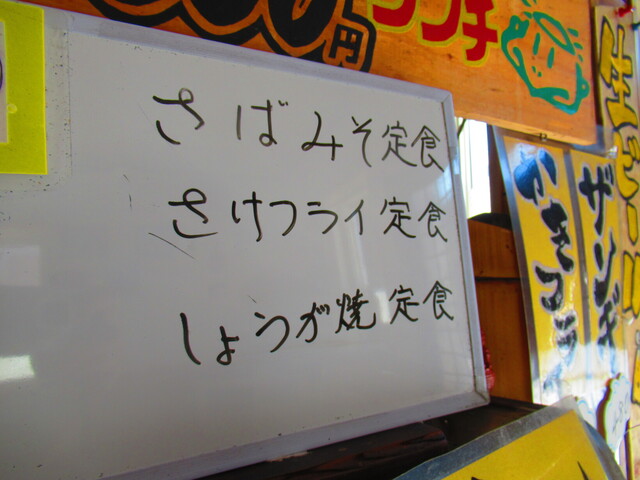 円
ランチ
さばみそ定食
さけフライ定食
しょうが焼定食
かきフライ
ザンギ
生ビール